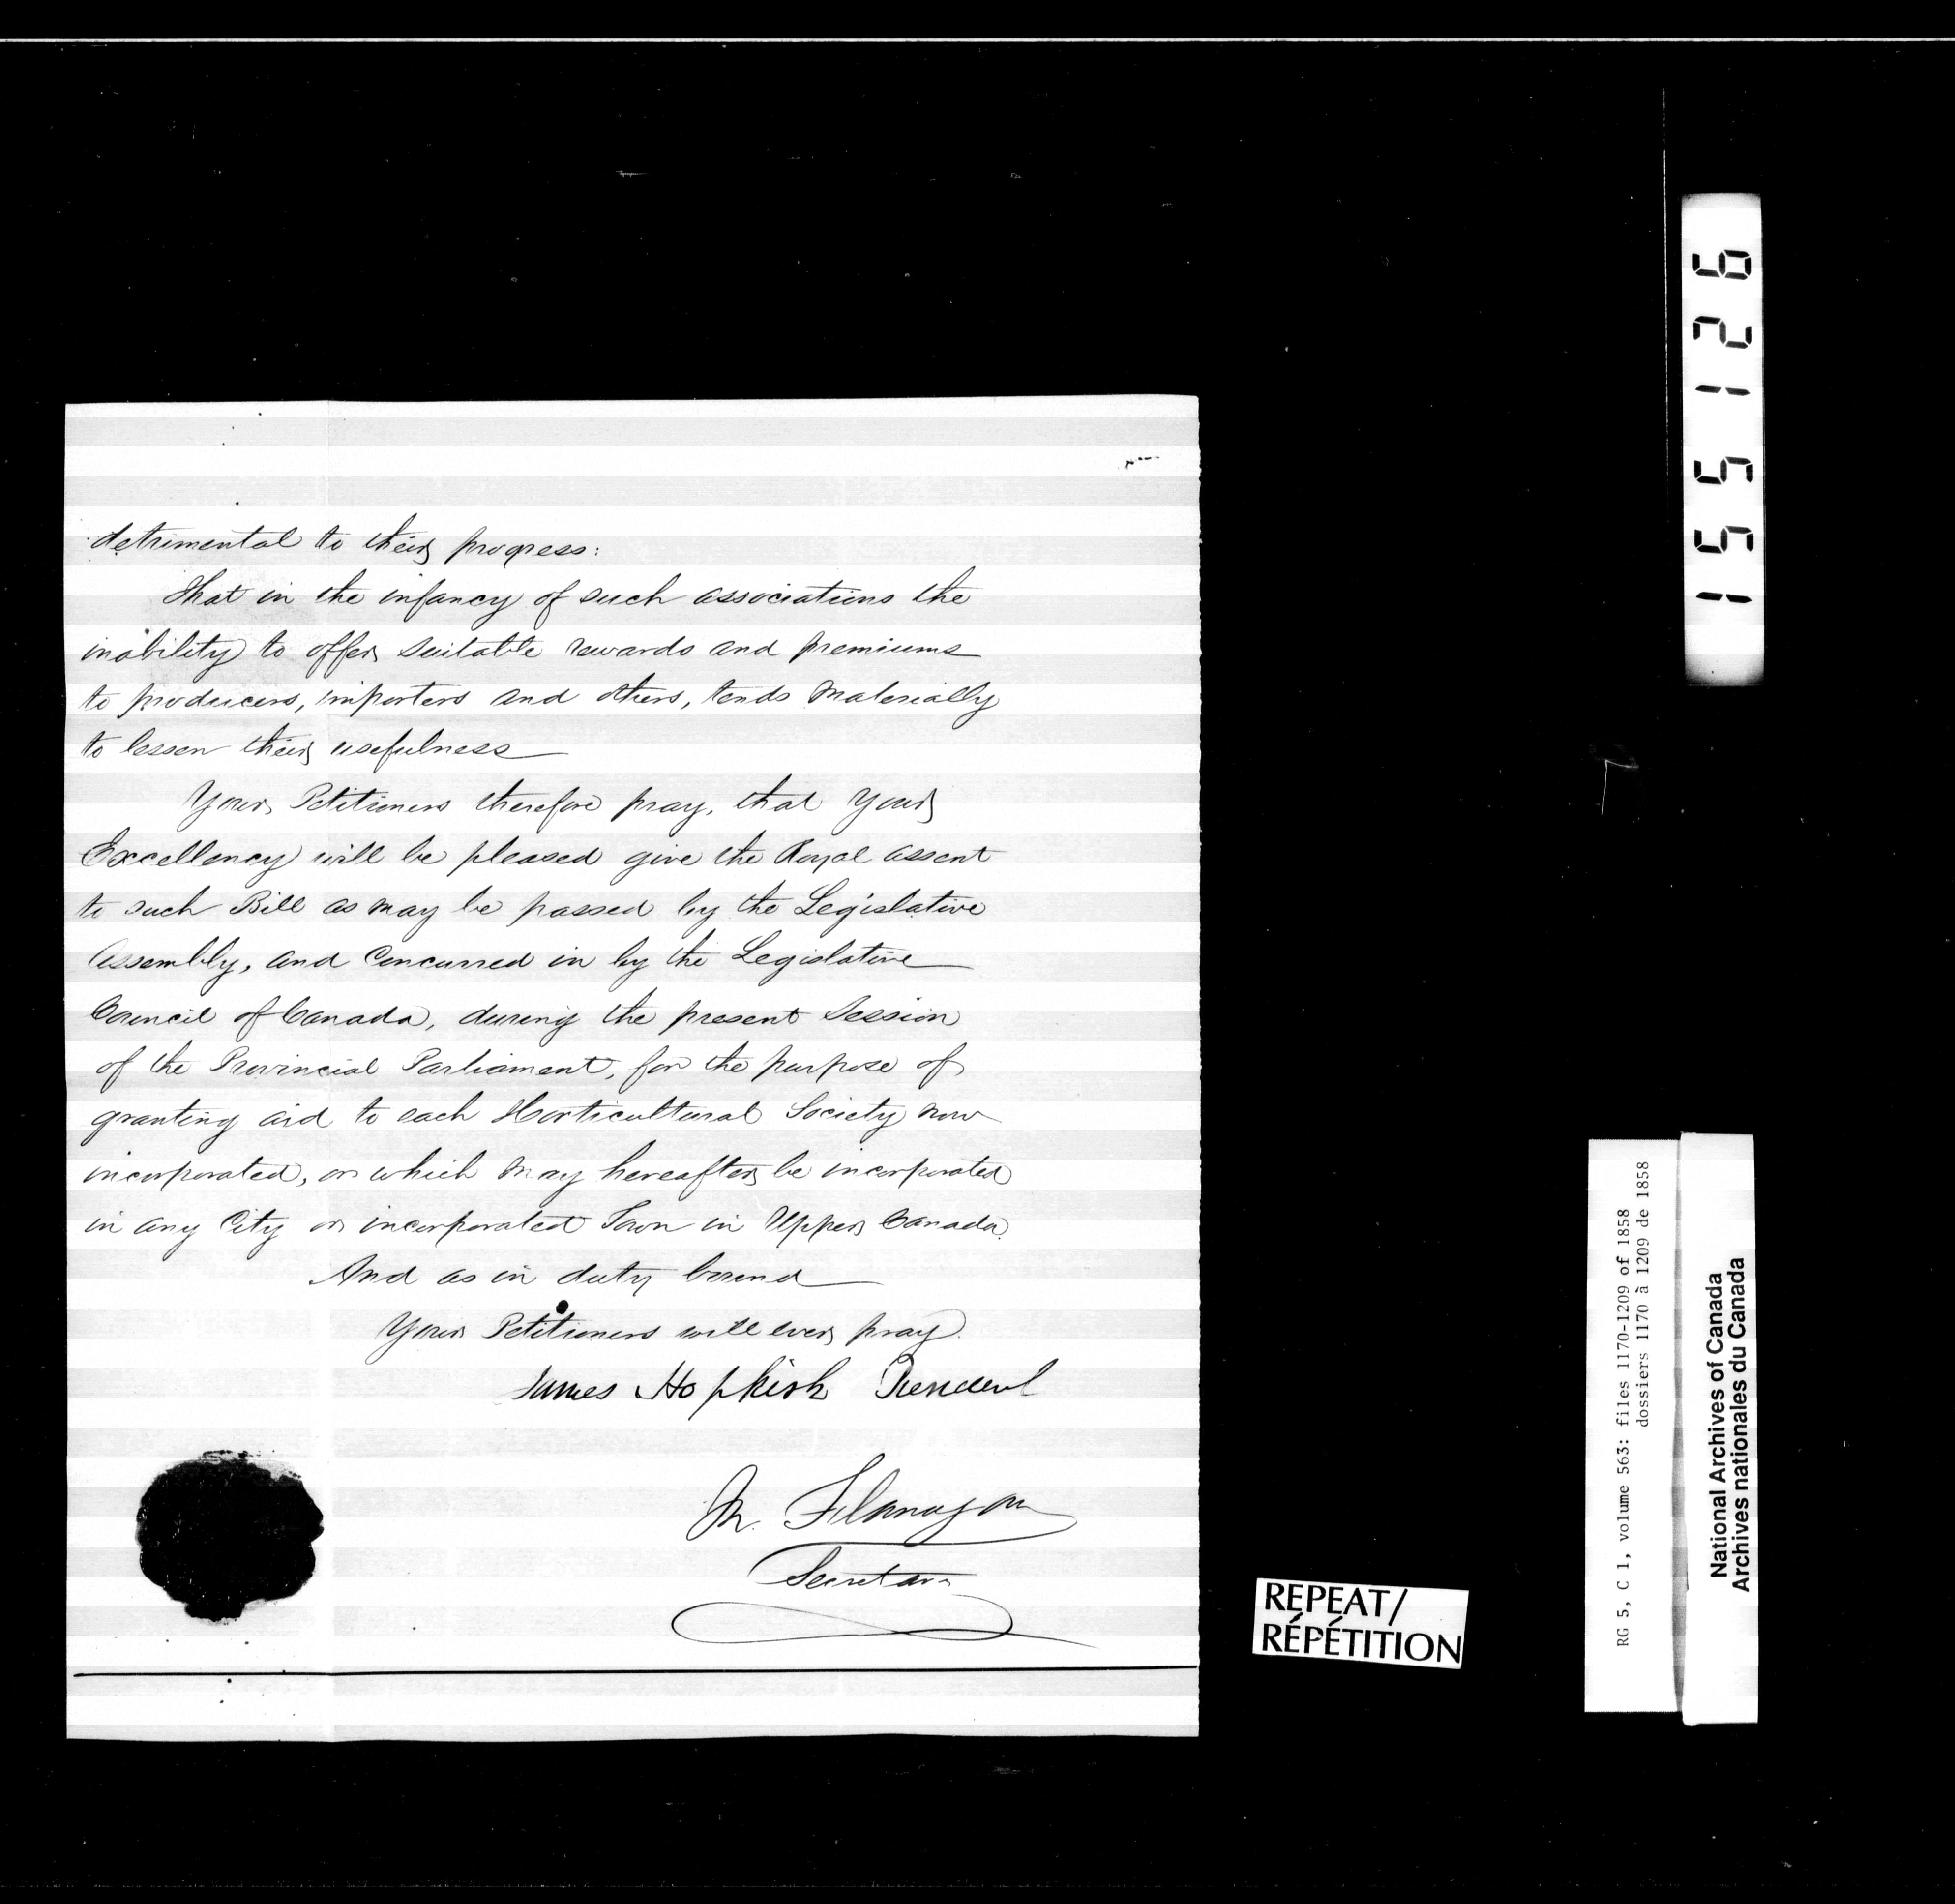 detrimental to their progress:
That in the infancy of such associations the
inability to offer suitable rewards and premiums
to producers, importers and others, tends materially
to lessen their usefulness
Your Petitioners therefore pray, that Your
Excellency will be pleased give the Royal assent
to such Bill as may be passed by the Legislative
Assembly, and Concurred in by the Legislative
Council of Canada, during the present Session
of the Provincial Parliament, for the purpose of
granting aid to each Horticultural Society now
incorporated, or which may hereafter be incorporated
in any City or incorporated Town in Upper Canada.
And as in duty bound
Your Petitioners will ever pray.
James Hopkirk President
M. Flanagan
Secretary
REPEAT/
RÉPÉTITION
155126
RG 5, C 1, volume 563: files 1170-1209 of 1858
dossiers 1170 à 1209 de 1858
National Archives of Canada
Archives nationales du Canada